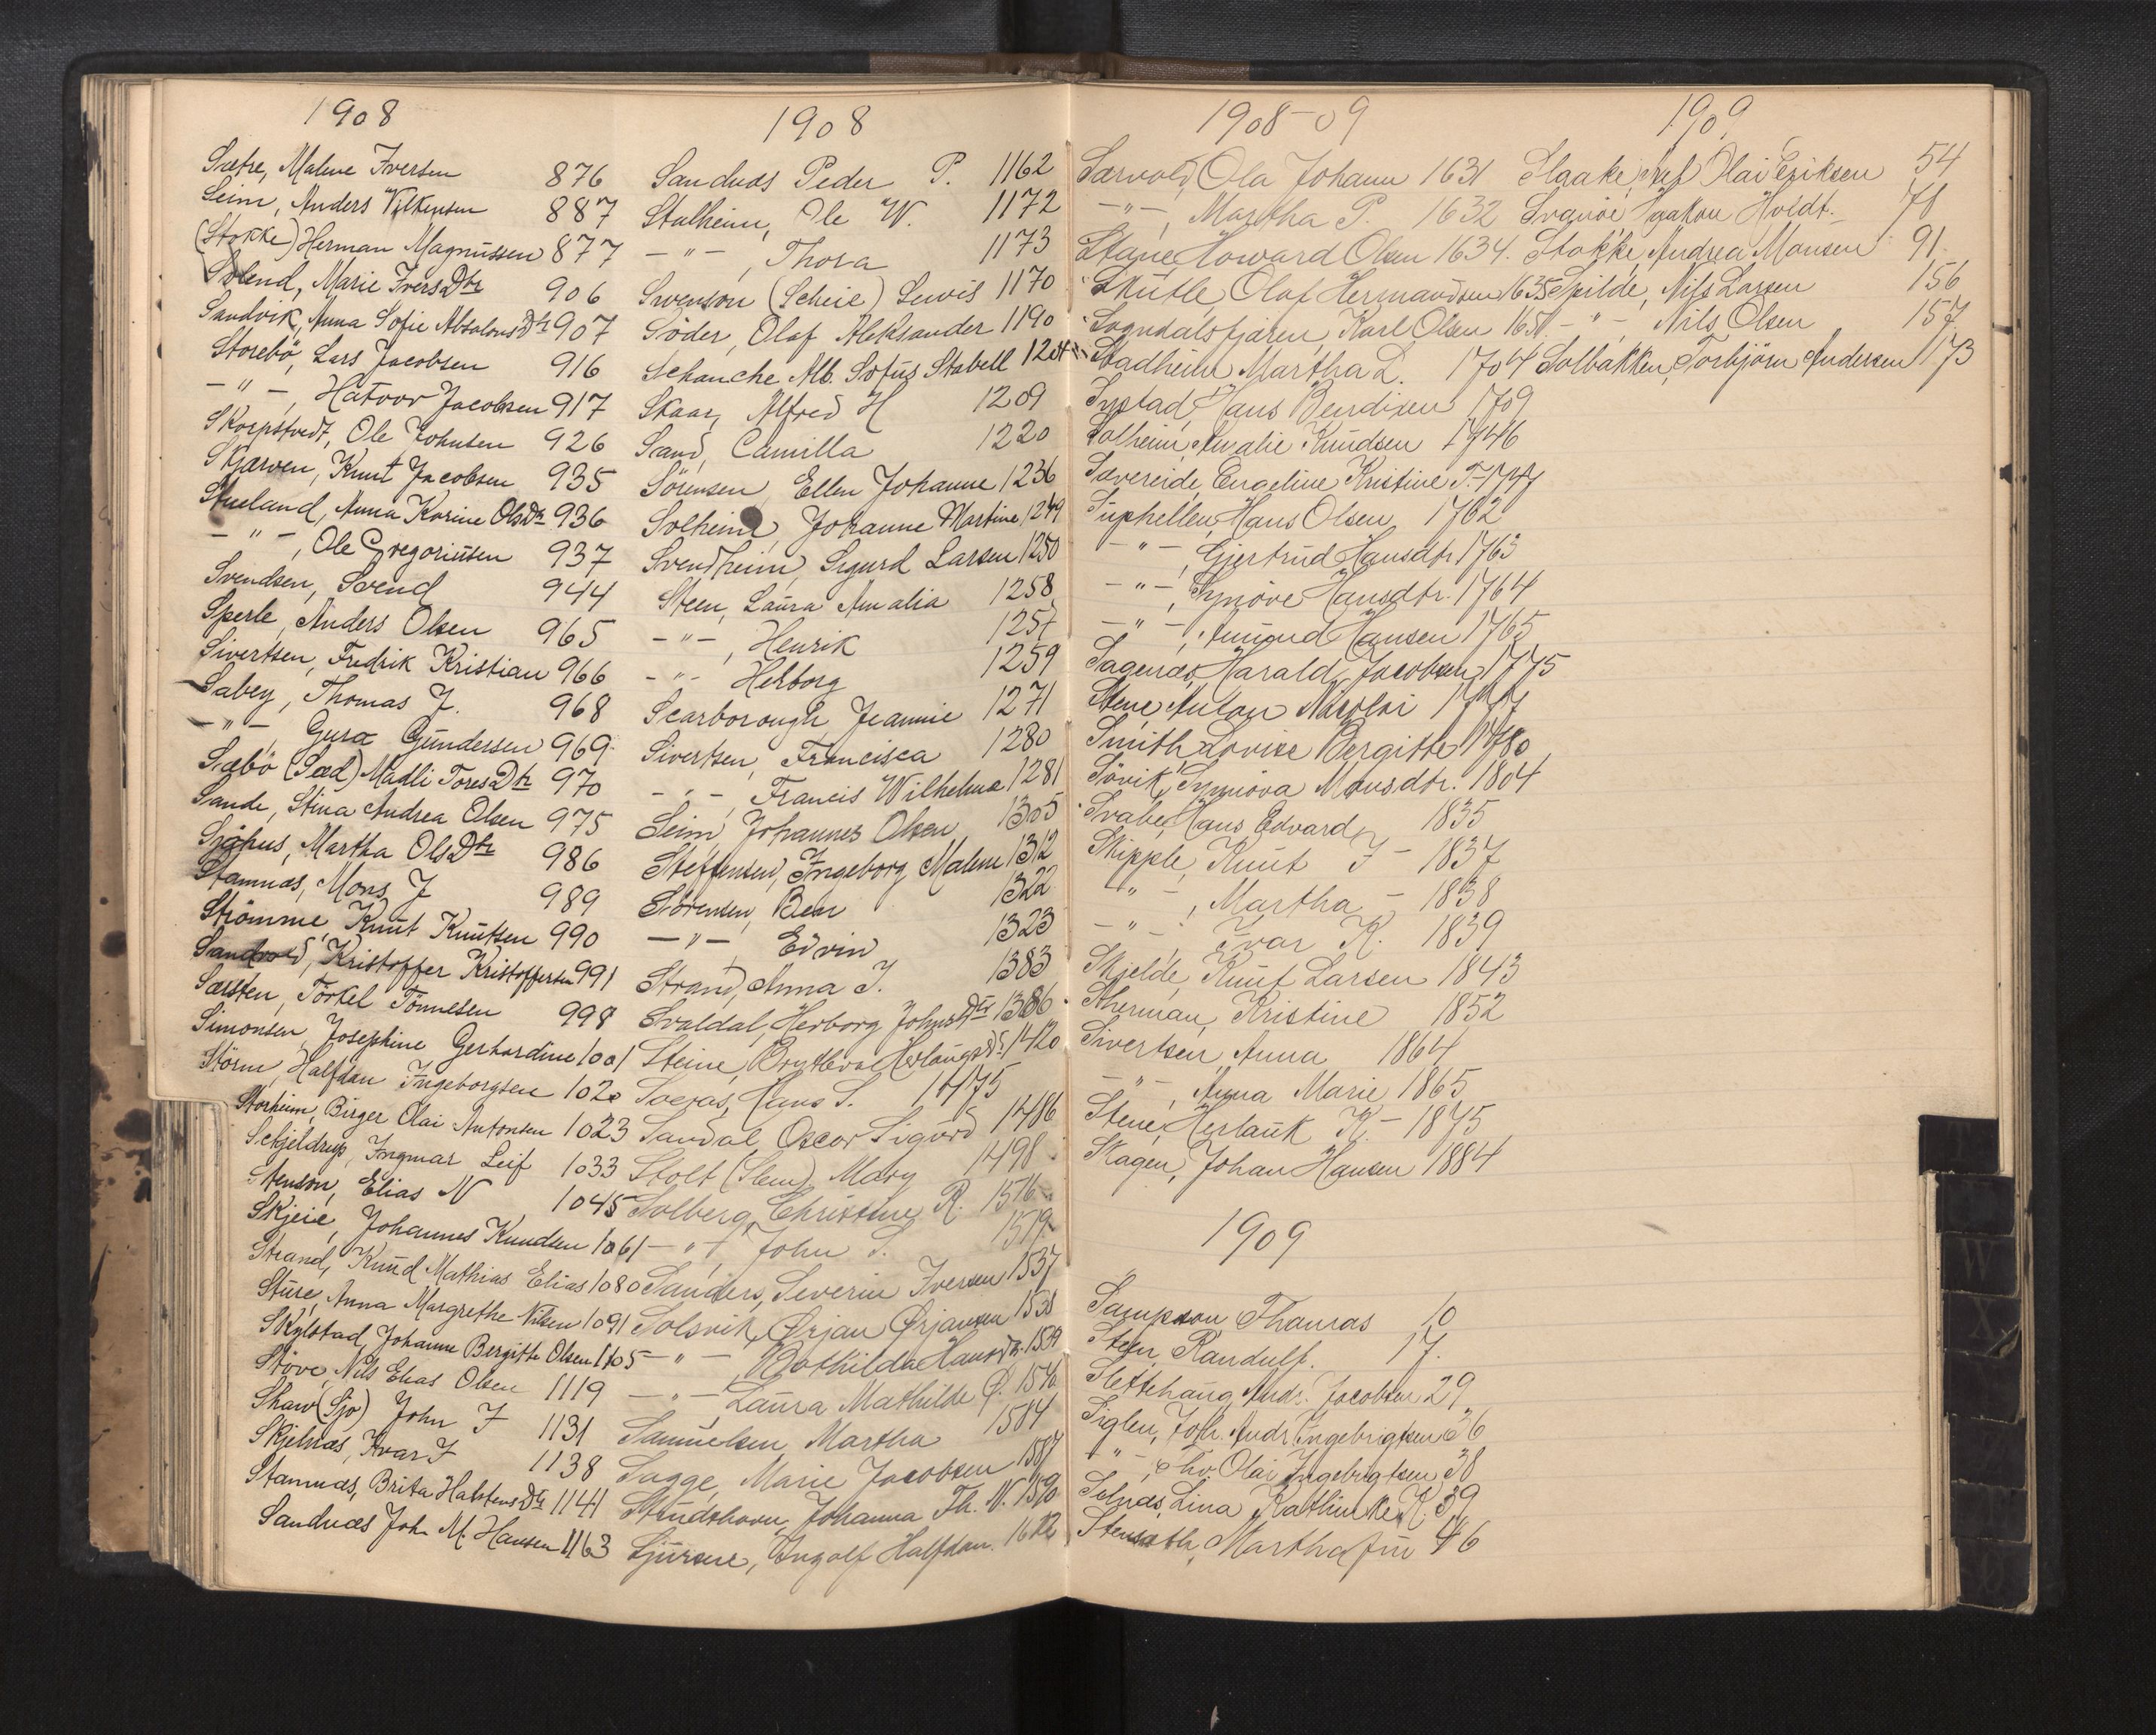 1908
Sætre, Malene Iversen 876
Seim, Anders Vilkensen 887
(Stokke) Herman Magnussen 877
Solend, Marie IversDtr 906
Sandvik, Anna Sofie AbsalonsDtr 907
Storebö, Lars Jacobsen 916
-"-, Hatvor Jacobsen 917
Skorpstvedt, Ole Johnsen 926
Skjærven, Knut Jacobsen 935
Stueland, Anna Karine OlsDtr 936
-"-, Ole Gregoriusen 937
Svendsen, Svend 944
Sperle, Anders Olsen 965
Sivertsen, Fredrik Kristian 966
Sabey, Thomas J. 968
-"-, Guro Gundersen 969
Sæbö (Sæd) Madli ToresDtr 970
Sande, Stina Andrea Olsen 975
Sjöhus, Martha OlsDtr 986
Stamnæs, Mons J 989
Strömme, Knut Knutsen 990
Sandvold, Kristoffer Kristoffersen 991
Sæsten, Törkel Tönnesen 998
Simonsen, Josephine Gerhardine 1001
Störm, Halfdan Ingeborgsen 1020
Storheim, Birger Olai Antonsen 1023
Schjeldrup, Ingmar Leif 1033
Stenson, Elias N 1045
Skjeie, Johannes Knudsen 1061
Strand, Knud Mathias Elias 1080
Sture, Anna Margrethe Nilsen 1091
Skylstad, Johanne Bergitte Olsen 1105
Stöve, Nils Elias Olsen 1119
Shaw (Sjo) John J 1131
Skjelnæs, Ivar J 1138
Stamnæs, Brita HalstensDtr 1141
Sandnæs Joh. M. Hansen 1163
1908
Sandnæs Peder P. 1162
Stalheim, Ole W. 1172
-"-, Thora 1173
Swenson (Scheie) Lewis 1170
Söder, Olaf Aleksander 1190
Schanche, Alb. Sofus Stabell 1204
Skaar, Alfred H 1209
Sand, Camilla 1220
Sörensen, Ellen Johanne 1236
Solheim, Johanne Martine 1249
Svendheim, Sigurd Larsen 1250
Steen, Laura Amalia 1258
-"-, Henrik 1257
-"- Herborg 1259
Scarborough, Jeannie 1271
Sivertsen, Francisca 1280
-"-, Francis Wilhelma 1281
Seim, Johannes Olsen 1305
Steffensen, Ingeborg Malene 1312
Sörensen, Ben 1322
-"-, Edvin 1323
Strand, Anna J. 1383
Svaldal, Herborg JohnsDtr 1386
Steine, 1420
Hans S. 1475
Sandal Oscar Sigurd 1486
Stolt Mary 1498
Solberg, Christine R. 1516
-"-, John S. 1519
Sanders, Severin Iversen 1537
Solsvik, Ørjan Ørjansen 1538
-"-, Bothilda Hansdtr. 1539
-"- Laura Mathilde Ø. 1540
Samuelsen, Martha 1584
Sagge, Marie Jacobsen 1587
Johanna Th. N. 1590
Sjursen, Ingolf Halfdan. 1612
1908-09
Særvold, Ola Johann 1631
-"-, Martha P. 1632
Stane, Howard Olsen 1634.
Skutle, Olaf Hermandsen 1635
Sogndalsfjæren, Karl Olsen 1651
Stadheim Martha L. 1704
Systad, Hans Bendixen 1709
Solheim, Amalie Knudsen 1746
Sævereide, Engeline Kristine T.
Suphellen, Hans Olsen 1762
-"-, Gjertrud Hansdtr. 1763
-"-, Synöve Hansdtr. 1764
-"-, Amund Hansen 1765
Sagenæs, Harald Jacobsen 1775
Stene, Anton Nicolai 1777
Smith, Lovise Bergitte 1780
Sövik, Synnöva Monsdtr. 1804
Svabe, Hans Edvard 1835
Skipple, Knut J - 1837
-"-, Martha - 1838
-"-, Ivar K. 1839
Skjelde, Knut Larsen 1843
Sherman, Kristine 1852
Sivertsen, Anna 1864
-"-, Anna Marie 1865
Stene, Herlauk K. - 1875
Skagen, Johan Hansen 1884
1909
Sampson Thomas 10
Steen, Randulf. 17.
Slettehaug, Andr. Jacobsen 29
Siglen, Joh. Andr. Ingebrigtsen 36
-"-, Olai Ingebrigtsen 38
Solnæs, Lina Kathinka K. 39
Stensæth, Martha 46
1909
Slaake, Olai Eriksen 54
Sognöe Haakon Holdt. 78
Stokke, Andrea Monsen 91
Spilde, Nils Larsen 156
-"- Nils Olsen 157
Solbakken, Torbjörn Andersen 173